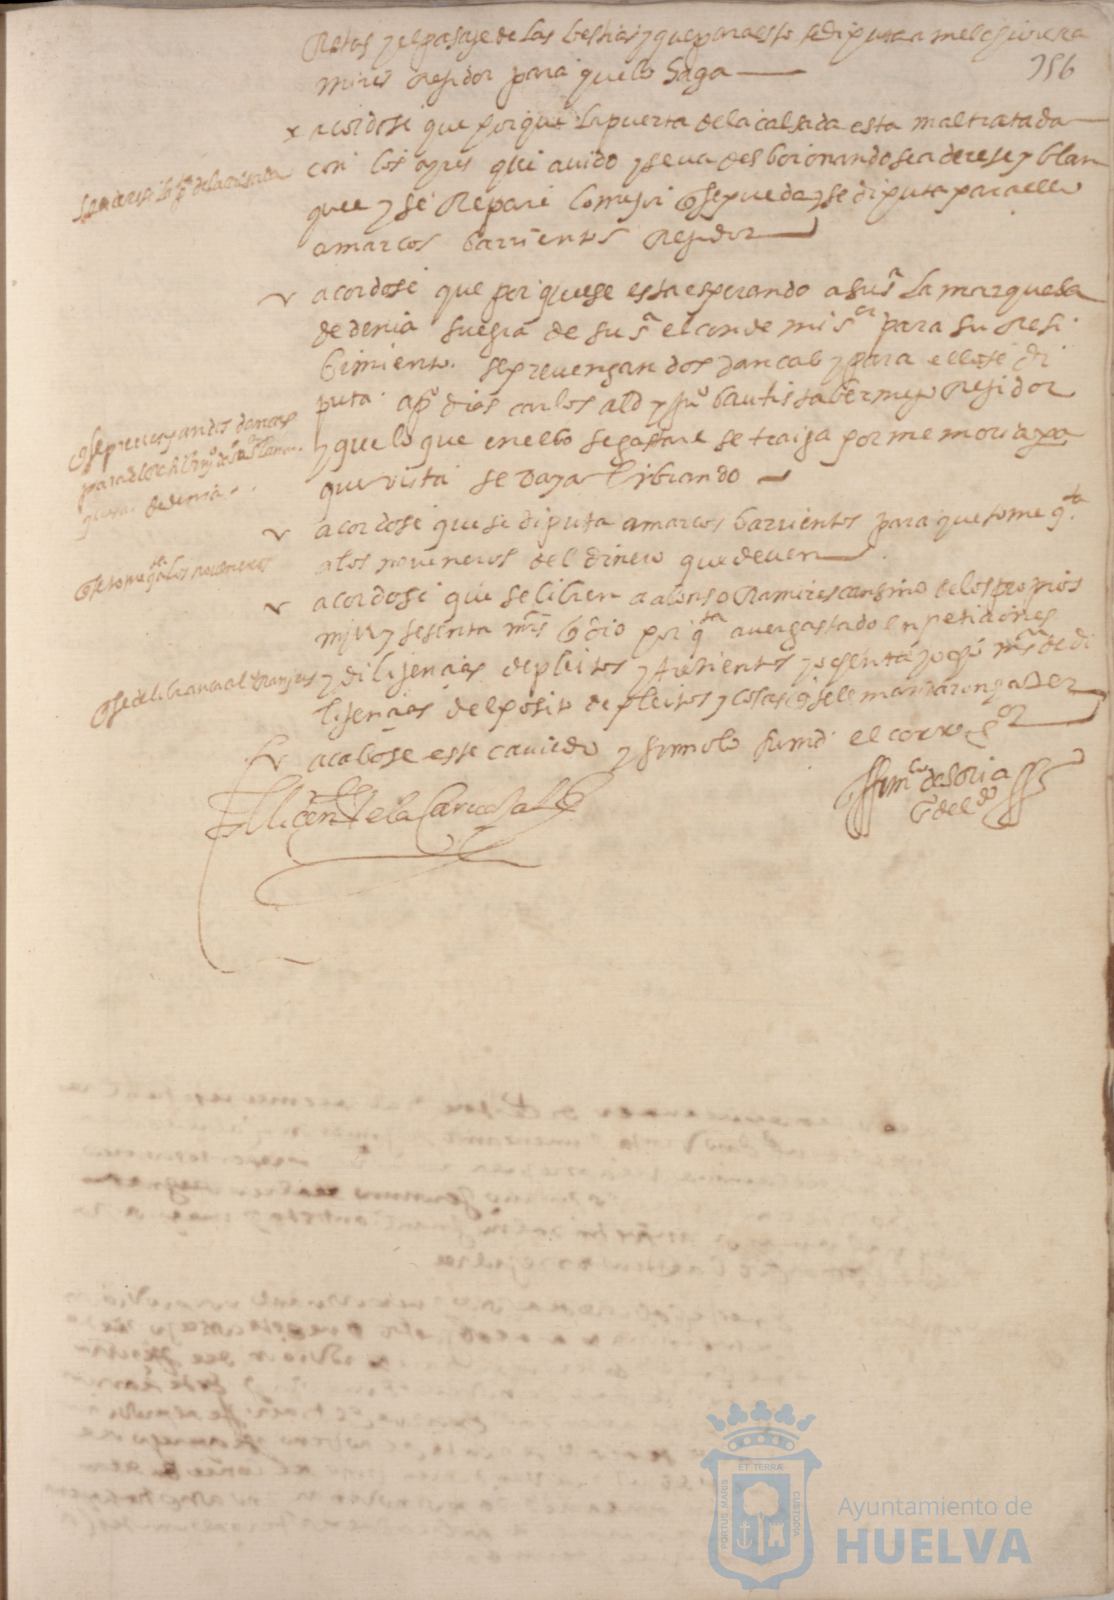 Rotas y el pasaje de las bestias y que para esto se diputa a melchior ra
mires Regidor para que lo haga
356
acordose que porque la puerta de la calsada esta maltratada
con los ayres que avido y se va desboronando se aderese y blan
quee y se Repare lo mejor q se pueda y se diputa para ello
a marcos barrientos Regidor
se aderese la pta de la calsada
acordose que porque se esta esperando a su sa La marquesa
de denia suegra de su sa el conde mi sor para su Resi
bimiento se prevengan dos dancas y para ello se di
puta a po dias carlos ald y juo bautista bermejo Regidor
y que lo que en ello se gastare se traiga por memoria pa
que vista se vaya librando
q se prevengan dos dancas
para el Recibimyo de su sa la mar
quesa de denia
acordose que se diputa a marcos barrientos para que tome qta
a los noveneros del dinero que deven
q se tome qta a los noveneros
acordose que se libren a alonso Ramires cansino de los propios
y sesenta mrs q dio por qta aver gastado en peticiones
y dilijencias de pleitos y tresientos y sesenta y ocho mrs de di
lijencias del posito de pleitos y cosas q se le mandaron haser
acabose este cavildo y firmolo su md el corregor
El licendo de la Barco
franco de Soria
es del cdo
Ayuntamiento de
HUELVA
PORTUS MARIS
ET TERRÆ
CUSTODIA